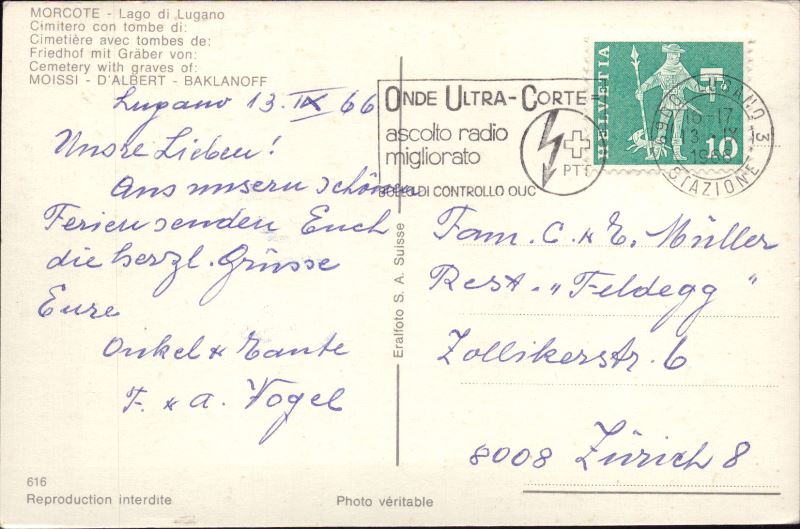 MORCOTE - Lago di Lugano
Cimitero con tombe di:
Cimetière avec tombes de:
Friedhof mit Gräber von:
Cemetery with graves of:
MOISSI - D'ALBERT - BAKLANOFF
Lugano 13. IX 66
Unsre Lieben!
Aus unsern schönen
Ferien senden Euch
die herzl. Grüsse
Eure
Onkel & Tante
F. & A. Vogel
616
Reproduction interdite
Photo véritable
Eralfoto S. A. Suisse
ONDE ULTRA-CORTE=
ascolto radio
migliorato
PTT
BOLLO DI CONTROLLO OUC
HELVETIA
10
LUGANO 3
16-17
IX
1966
STAZIONE
Fam. C. & E. Müller
Rest. „Feldegg"
Zollikerstr. 6
8008 Zürich 8